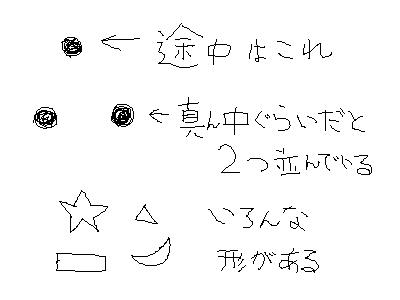 途中はこれ
真ん中ぐらいだと
2つ並んでいる
いろんな
形がある